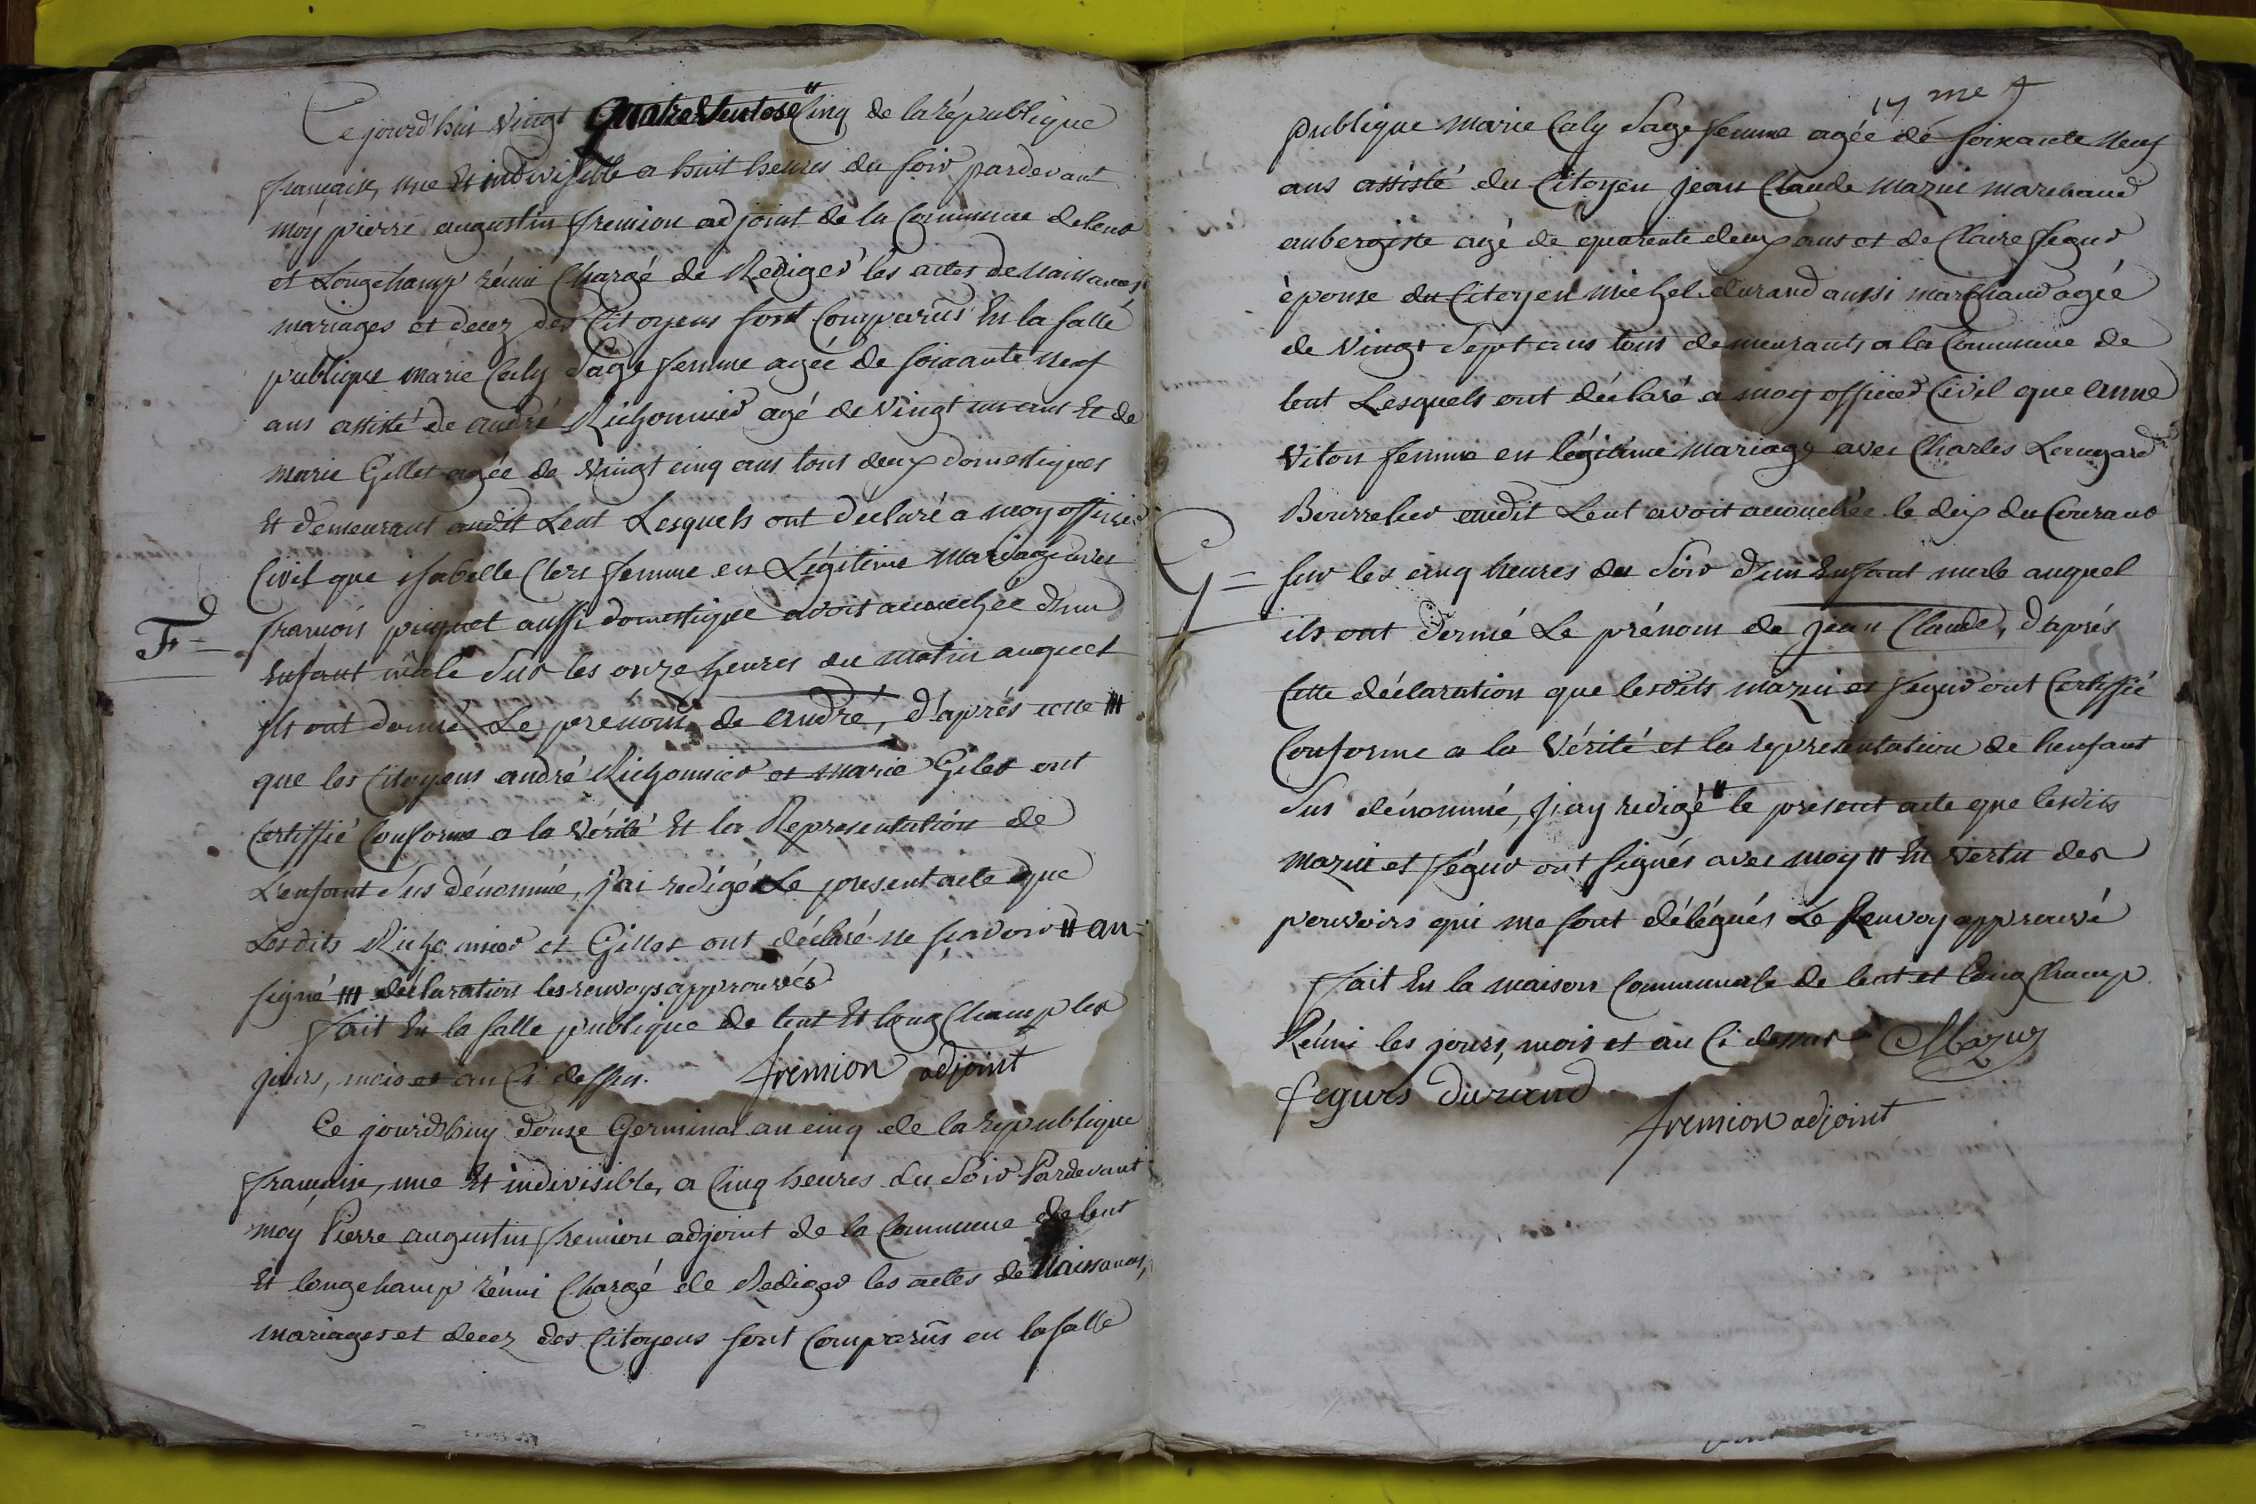 Ce jourd'hui vingt quatre ventose " Cinq de la république
française, une et indivisible a huit heures du soir pardevant
moy pierre augustin fremion adjoint de la Commune de lent
et Longchamp réuni Chargé de Rediger les actes de naissances,
mariages et decez des Citoyens sont Comparûs En la salle
publique marie Caly Sage femme agée de soixante neuf
ans assisté de andré Richonnier agé de vingt un ans Et de
marie Gillet agée de vingt cinq ans tous deux domestiques
Et demeurant audit Lent Lesquels ont declaré a moy officier
Civil que isabelle Clerc femme en Légitime mariage avec
F = francois piquet aussi domestique avoit accouchée d'un
Enfant mâle sur les onze heures du matin auquel
ils ont donné Le prénom de andré, d'aprés cette |||
que les Citoyens andré Richonnier et marie Gilet ont
Certiffié Conforme a la Vérité Et la Representation de
L'enfant Sus dénommé, j'ai redigé Le present acte que
Lesdits Richonnier et Gillet ont déclaré ne sçavoir " an =
signé ||| déclaration les renvoys approuvés
fait En la salle publique de lent Et long Champ les
jours, mois et an Ci dessus. fremion adjoint
Ce jourd'huy douze Germinal an cinq de la republique
française, une Et indivisible, a Cinq heures du Soir Pardevant
moy Pierre augustin fremion adjoint de la Commune de lent
Et longchamp réuni Chargé de Rediger les actes de Naissances,
mariages et decez des Citoyens sont Comparûs en la salle
17 me f
publique marie Caly Sage femme agée de soixante neuf
ans assisté du Citoyen jean Claude mazui marchand
aubergiste agé de quarente deux ans et de Claire segur
èpouse du Citoyen michel durand aussi marchand agée
de vingt Sept ans tous demeurants a la Commune de
lent Lesquels ont déclaré a moy officier Civil que anne
Viton femme en légitime mariage avec Charles
Bourrelier audit Lent avoit accouchée le dix du Courant
G = sur les cinq heures du Soir d'un Enfant male auquel
ils ont donné Le prénom de jean Claude, d'aprés
Cette déclaration que lesdits mazui et segur ont Certiffié
Conforme a la Vérité et la representation de l'enfant
Sus dénommé, j'ay redigé " le present acte que lesdits
mazui et ségur ont signés avec moy " En vertu des
pouvoirs qui me sont délégués Le Renvoy approuvé
fait En la maison Communale de lent et Long Champ
Réuni les jours, mois et an Ci dessus Mazuy
segurs durand
fremion adjoint